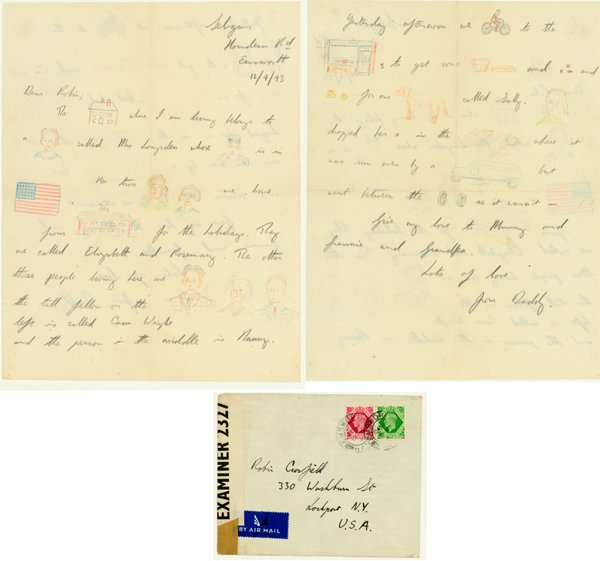 Emsworth
12/9/43
Dear Robin,
The where I am living belongs to
a called Mrs Longsden whose is in
Her two are home
from for the holidays. They
are called Elizabeth and Rosemary. The other
three people living here are
the tall fellow on the
left is called Cam Wright
and the person in the middle is Nanny.
Yesterday afternoon we to the
s to get some and and
for our called Sally.
dropped her in the where it
was run over by a but
went between the so it wasn't
Give my love to Mummy and
Grannie and Grandpa.
Lots of love
from Daddy.
EXAMINER 2327
Robin Croxfield
330 Washburn St
Lockport N.Y.
U.S.A.
BY AIR MAIL